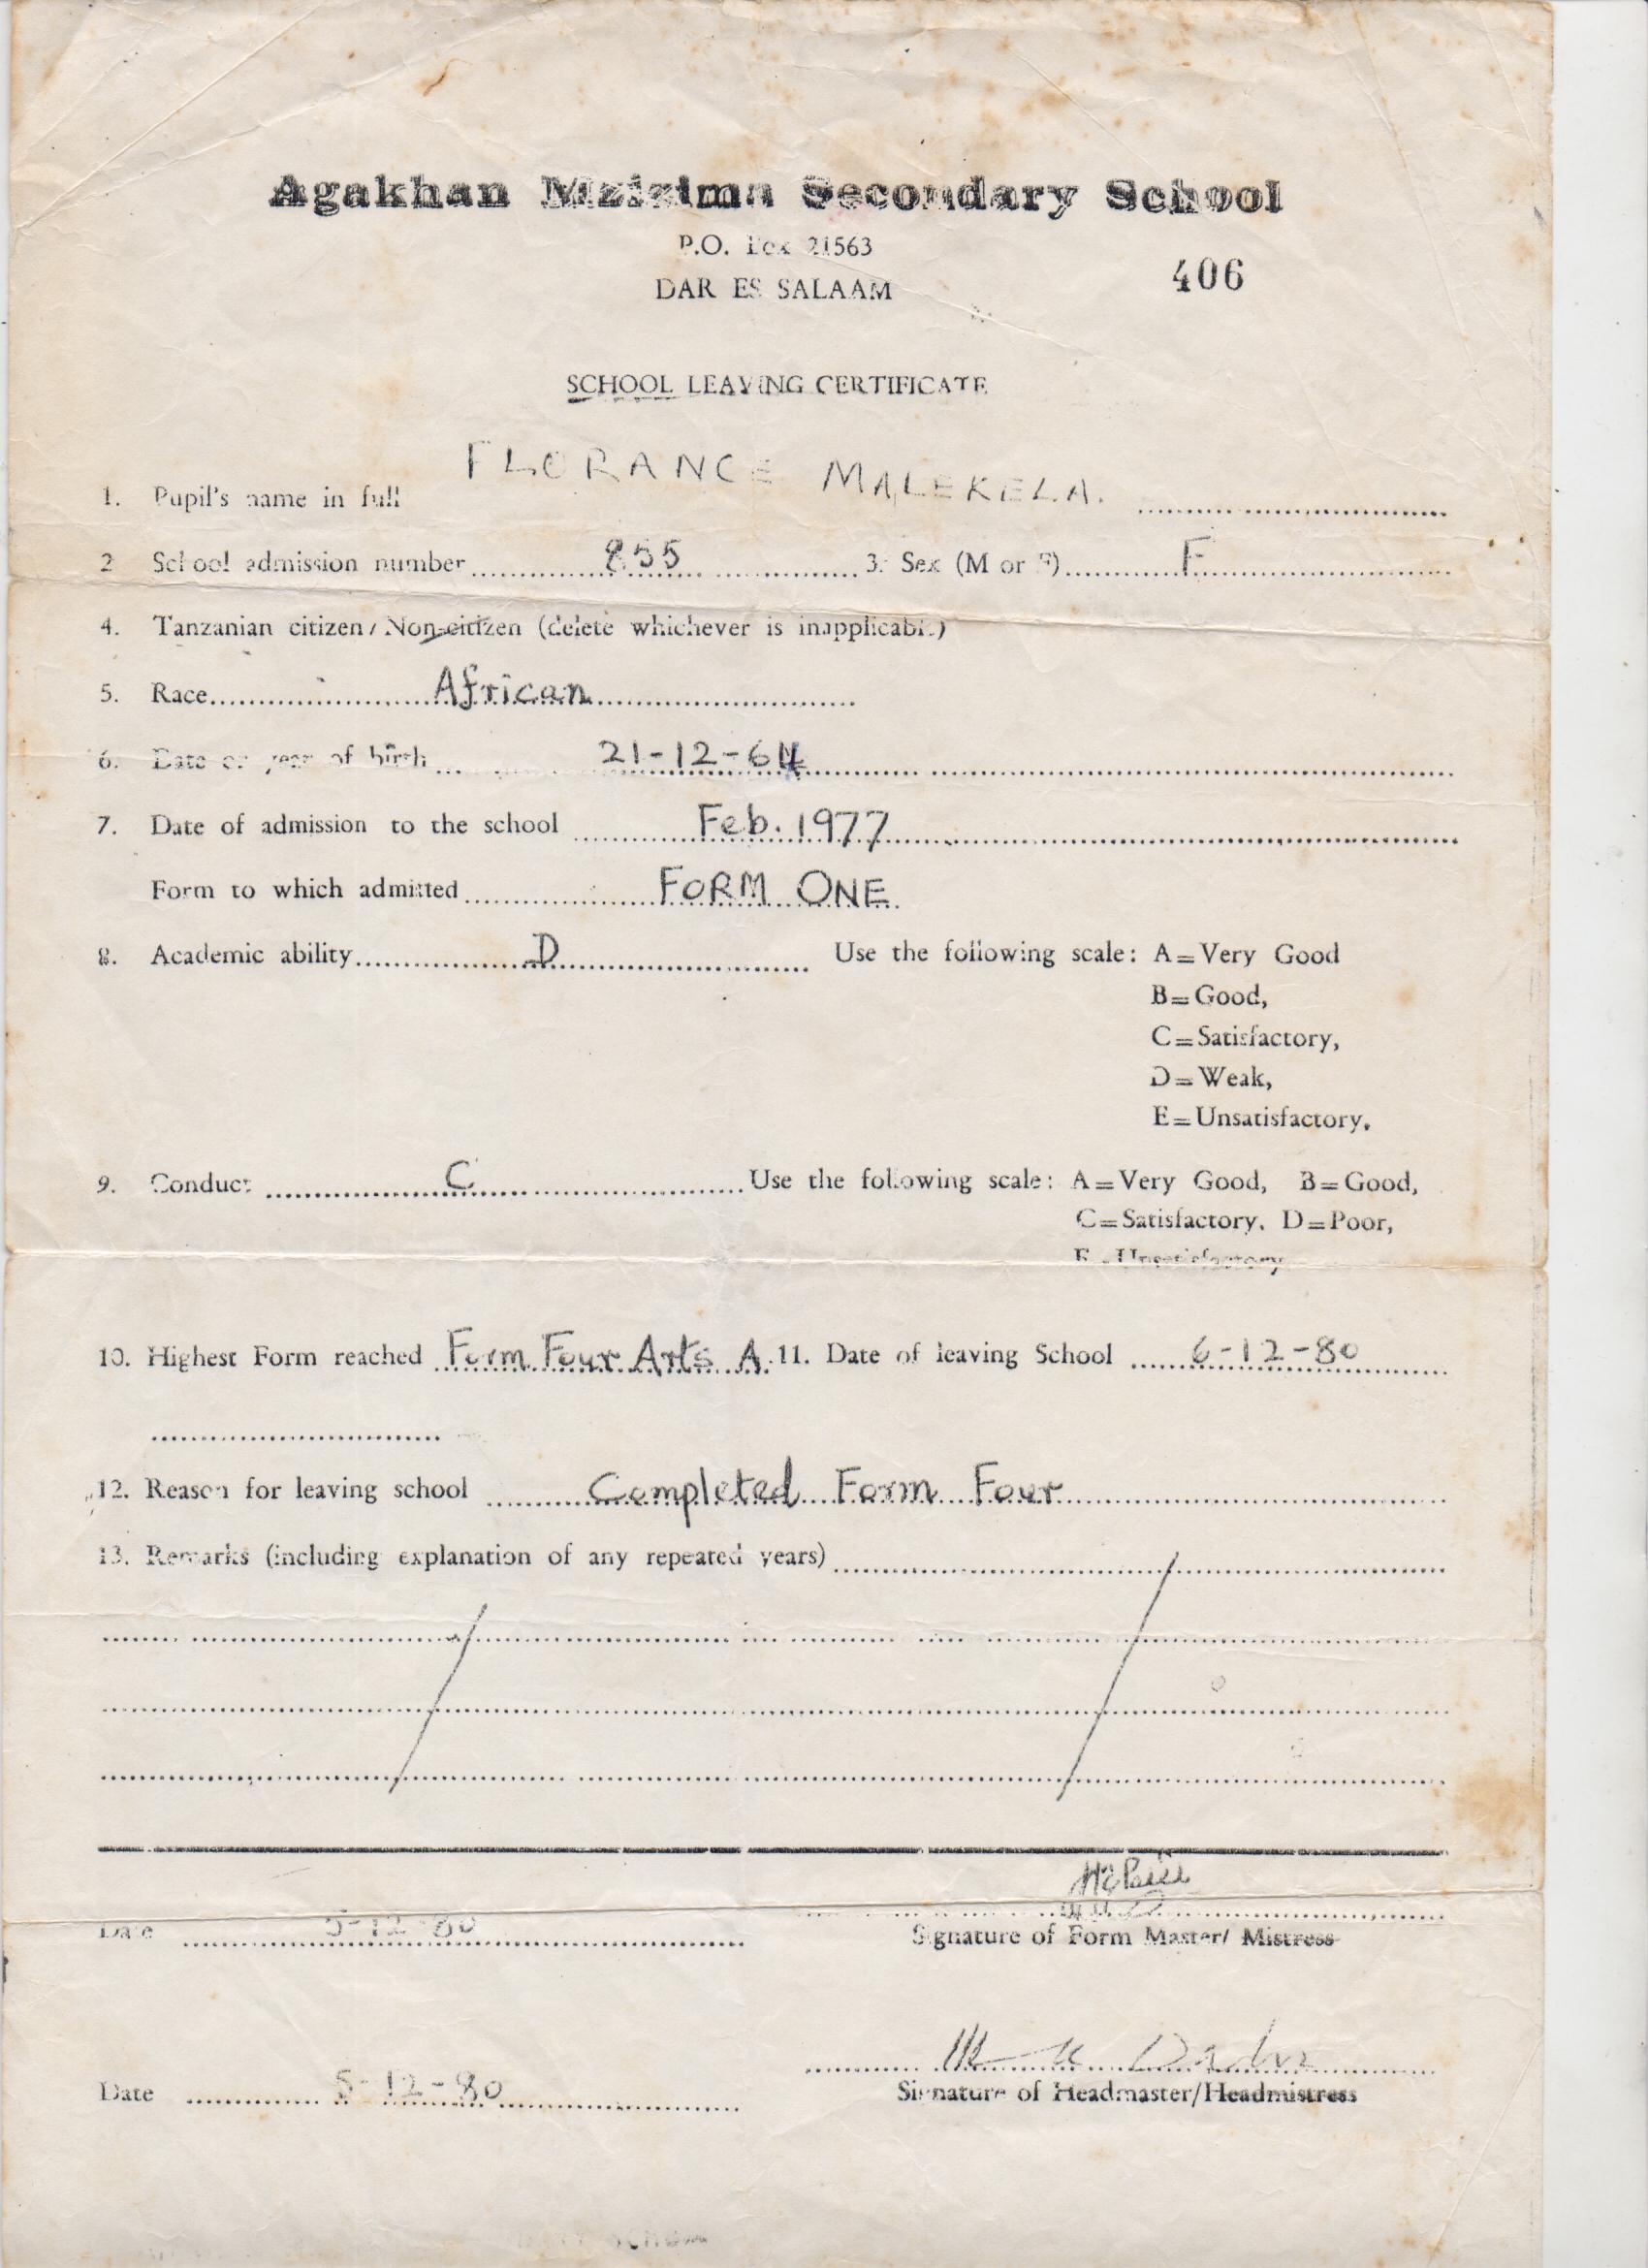 Agakhan Mzizima Secondary School
P.O. Box 21563
DAR ES SALAAM
406
SCHOOL LEAVING CERTIFICATE
1. Pupil's name in full FLORANCE MALEKELA.
2 School admission number 855 3. Sex (M or F) F
4. Tanzanian citizen / Non-citizen (delete whichever is inapplicable)
5. Race African
6. Date or year of birth 21-12-64
7. Date of admission to the school Feb. 1977
Form to which admitted FORM ONE.
8. Academic ability D Use the following scale: A=Very Good
B=Good,
C=Satisfactory,
D=Weak,
E=Unsatisfactory.
9. Conduct C Use the following scale: A=Very Good, B=Good,
C=Satisfactory. D=Poor,
E=Unsatisfactory
10. Highest Form reached Form Four Arts A. 11. Date of leaving School 6-12-80
12. Reason for leaving school Completed Form Four
13. Remarks (including explanation of any repeated years)
Date 5-12-80 Signature of Form Master/ Mistress
Date 5-12-80 Signature of Headmaster/Headmistress